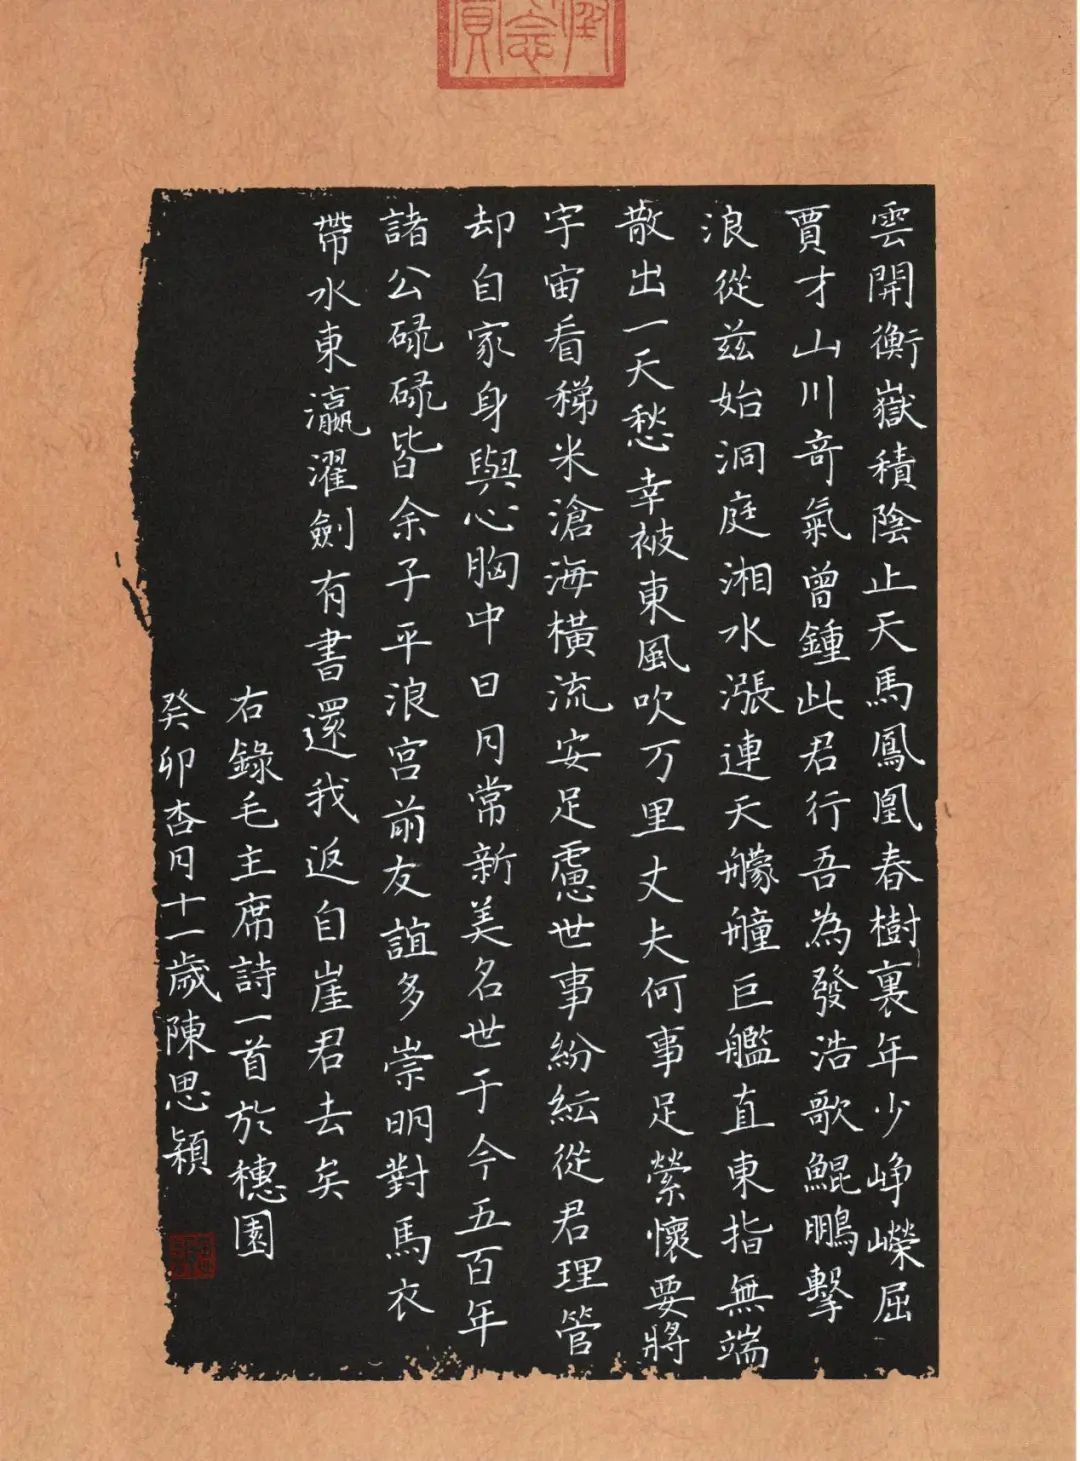 雲開衡嶽積陰止天馬鳳凰春樹裏年少崢嶸屈
賈才山川竒氣曾鍾此君行吾為發浩歌鯤鵬擊
浪從茲始洞庭湘水漲連天艨艟巨艦直東指無端
散出一天愁幸被東風吹万里丈夫何事足縈懷要將
宇宙看稊米滄海橫流安足慮世事紛紜從君理管
却自家身與心胸中日月常新美名世于今五百年
諸公碌碌皆余子平浪宮前友誼多崇明對馬衣
帶水東瀛濯劍有書還我返自崖君去矣
右錄毛主席詩一首於穗園
癸卯杏月十一歲陳思穎